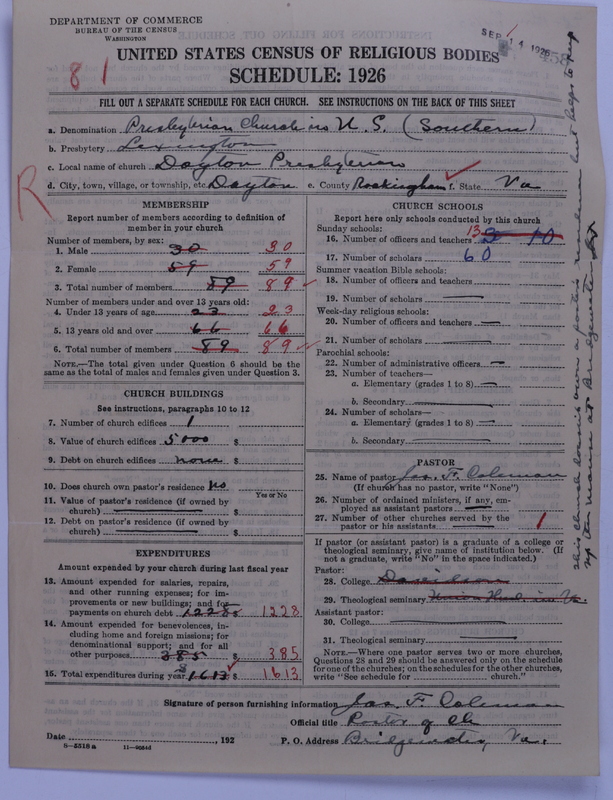 DEPARTMENT OF COMMERCE
BUREAU OF THE CENSUS
WASHINGTON
SEP 14 1926
UNITED STATES CENSUS OF RELIGIOUS BODIES
81
SCHEDULE: 1926
FILL OUT A SEPARATE SCHEDULE FOR EACH CHURCH. SEE INSTRUCTIONS ON THE BACK OF THIS SHEET
a. Denomination Presbyterian Church in U.S. (Southern)
b. Presbytery Lexington
c. Local name of church Dayton Presbyterian
d. City, town, village, or township, etc. Dayton e. County Rockingham f. State Va
R
MEMBERSHIP
Report number of members according to definition of
member in your church
Number of members, by sex:
1. Male 30 30
2. Female 59 59
3. Total number of members 89 89
Number of members under and over 13 years old:
4. Under 13 years of age 23 23
5. 13 years old and over 66 66
6. Total number of members 89 89
NOTE.—The total given under Question 6 should be
same as the total of males and females given under Question 3.
CHURCH BUILDINGS
See instructions, paragraphs 10 to 12
7. Number of church edifices 1
8. Value of church edifices 5000 $
9. Debt on church edifices none $
10. Does church own pastor's residence No
Yes or No
11. Value of pastor's residence (if owned by
church) $
12. Debt on pastor's residence (if owned by
church) $
EXPENDITURES
Amount expended by your church during last fiscal year
13. Amount expended for salaries, repairs,
and other running expenses; for im-
provements or new buildings; and for
payments on church debt 1228 1228
14. Amount expended for benevolences, in-
cluding home and foreign missions; for
denominational support; and for all
other purposes 385 $ 385
15. Total expenditures during year 1613 $ 1613
CHURCH SCHOOLS
Report here only schools conducted by this church
Sunday schools:
16. Number of officers and teachers 13 10
17. Number of scholars 60
Summer vacation Bible schools:
18. Number of officers and teachers
19. Number of scholars
Week-day religious schools:
20. Number of officers and teachers
21. Number of scholars
Parochial schools:
22. Number of administrative officers
23. Number of teachers—
a. Elementary (grades 1 to 8)
b. Secondary
24. Number of scholars—
a. Elementary (grades 1 to 8)
b. Secondary
PASTOR
25. Name of pastor Jas. F. Coleman
(If church has no pastor, write "None")
26. Number of ordained ministers, if any, em-
ployed as assistant pastors
27. Number of other churches served by the
pastor or his assistants 1
If pastor (or assistant pastor) is a graduate of a college or
theological seminary, give name of institution below. (If
not a graduate, write "No" in the space indicated.)
Pastor:
28. College Davidson
29. Theological seminary Union Theol. in Va.
Assistant pastor:
30. College
31. Theological seminary
NOTE.—Where one pastor serves two or more churches,
Questions 28 and 29 should be answered only on the schedule
for one of the churches; on the schedules for the other churches,
write "See schedule for church."
Signature of person furnishing information Jas. F. Coleman
Official title Pastor of Ch
Date , 192 P. O. Address Bridgewater, Va.
8—5518a 11—9084d
This church doesn't own a pastor's residence but helps to keep
up the manse at Bridgewater